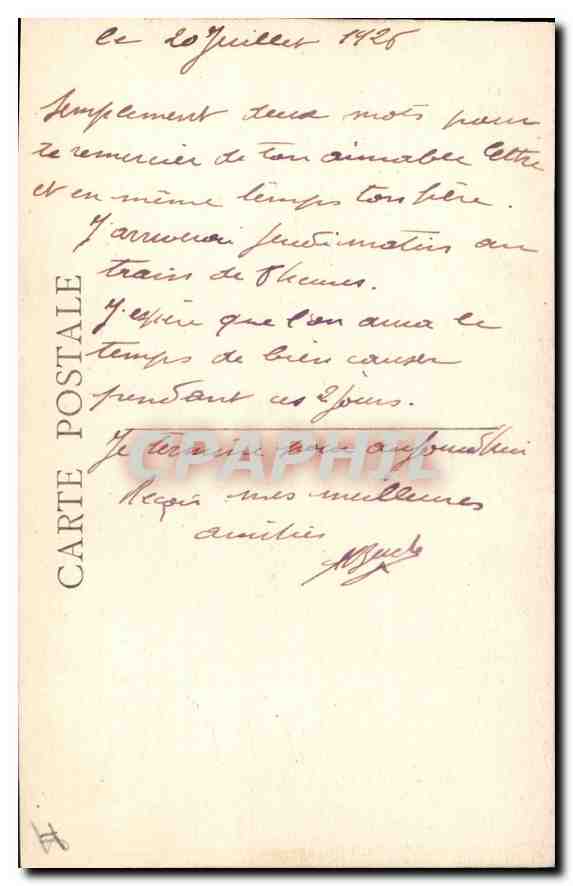 le 20 Juillet 1926
Semplement deux mots pour
te remercier de ton aimable lettre
et en même temps ton père.
J'arriverai Jeudi matin au
train de 8 heures.
J'espère que l'on aura le
temps de bien causer
pendant ces 2 jours.
Je termine pour aujourd'hui
Reçois mes meilleures
amitiés
CARTE POSTALE
CPAPHIL